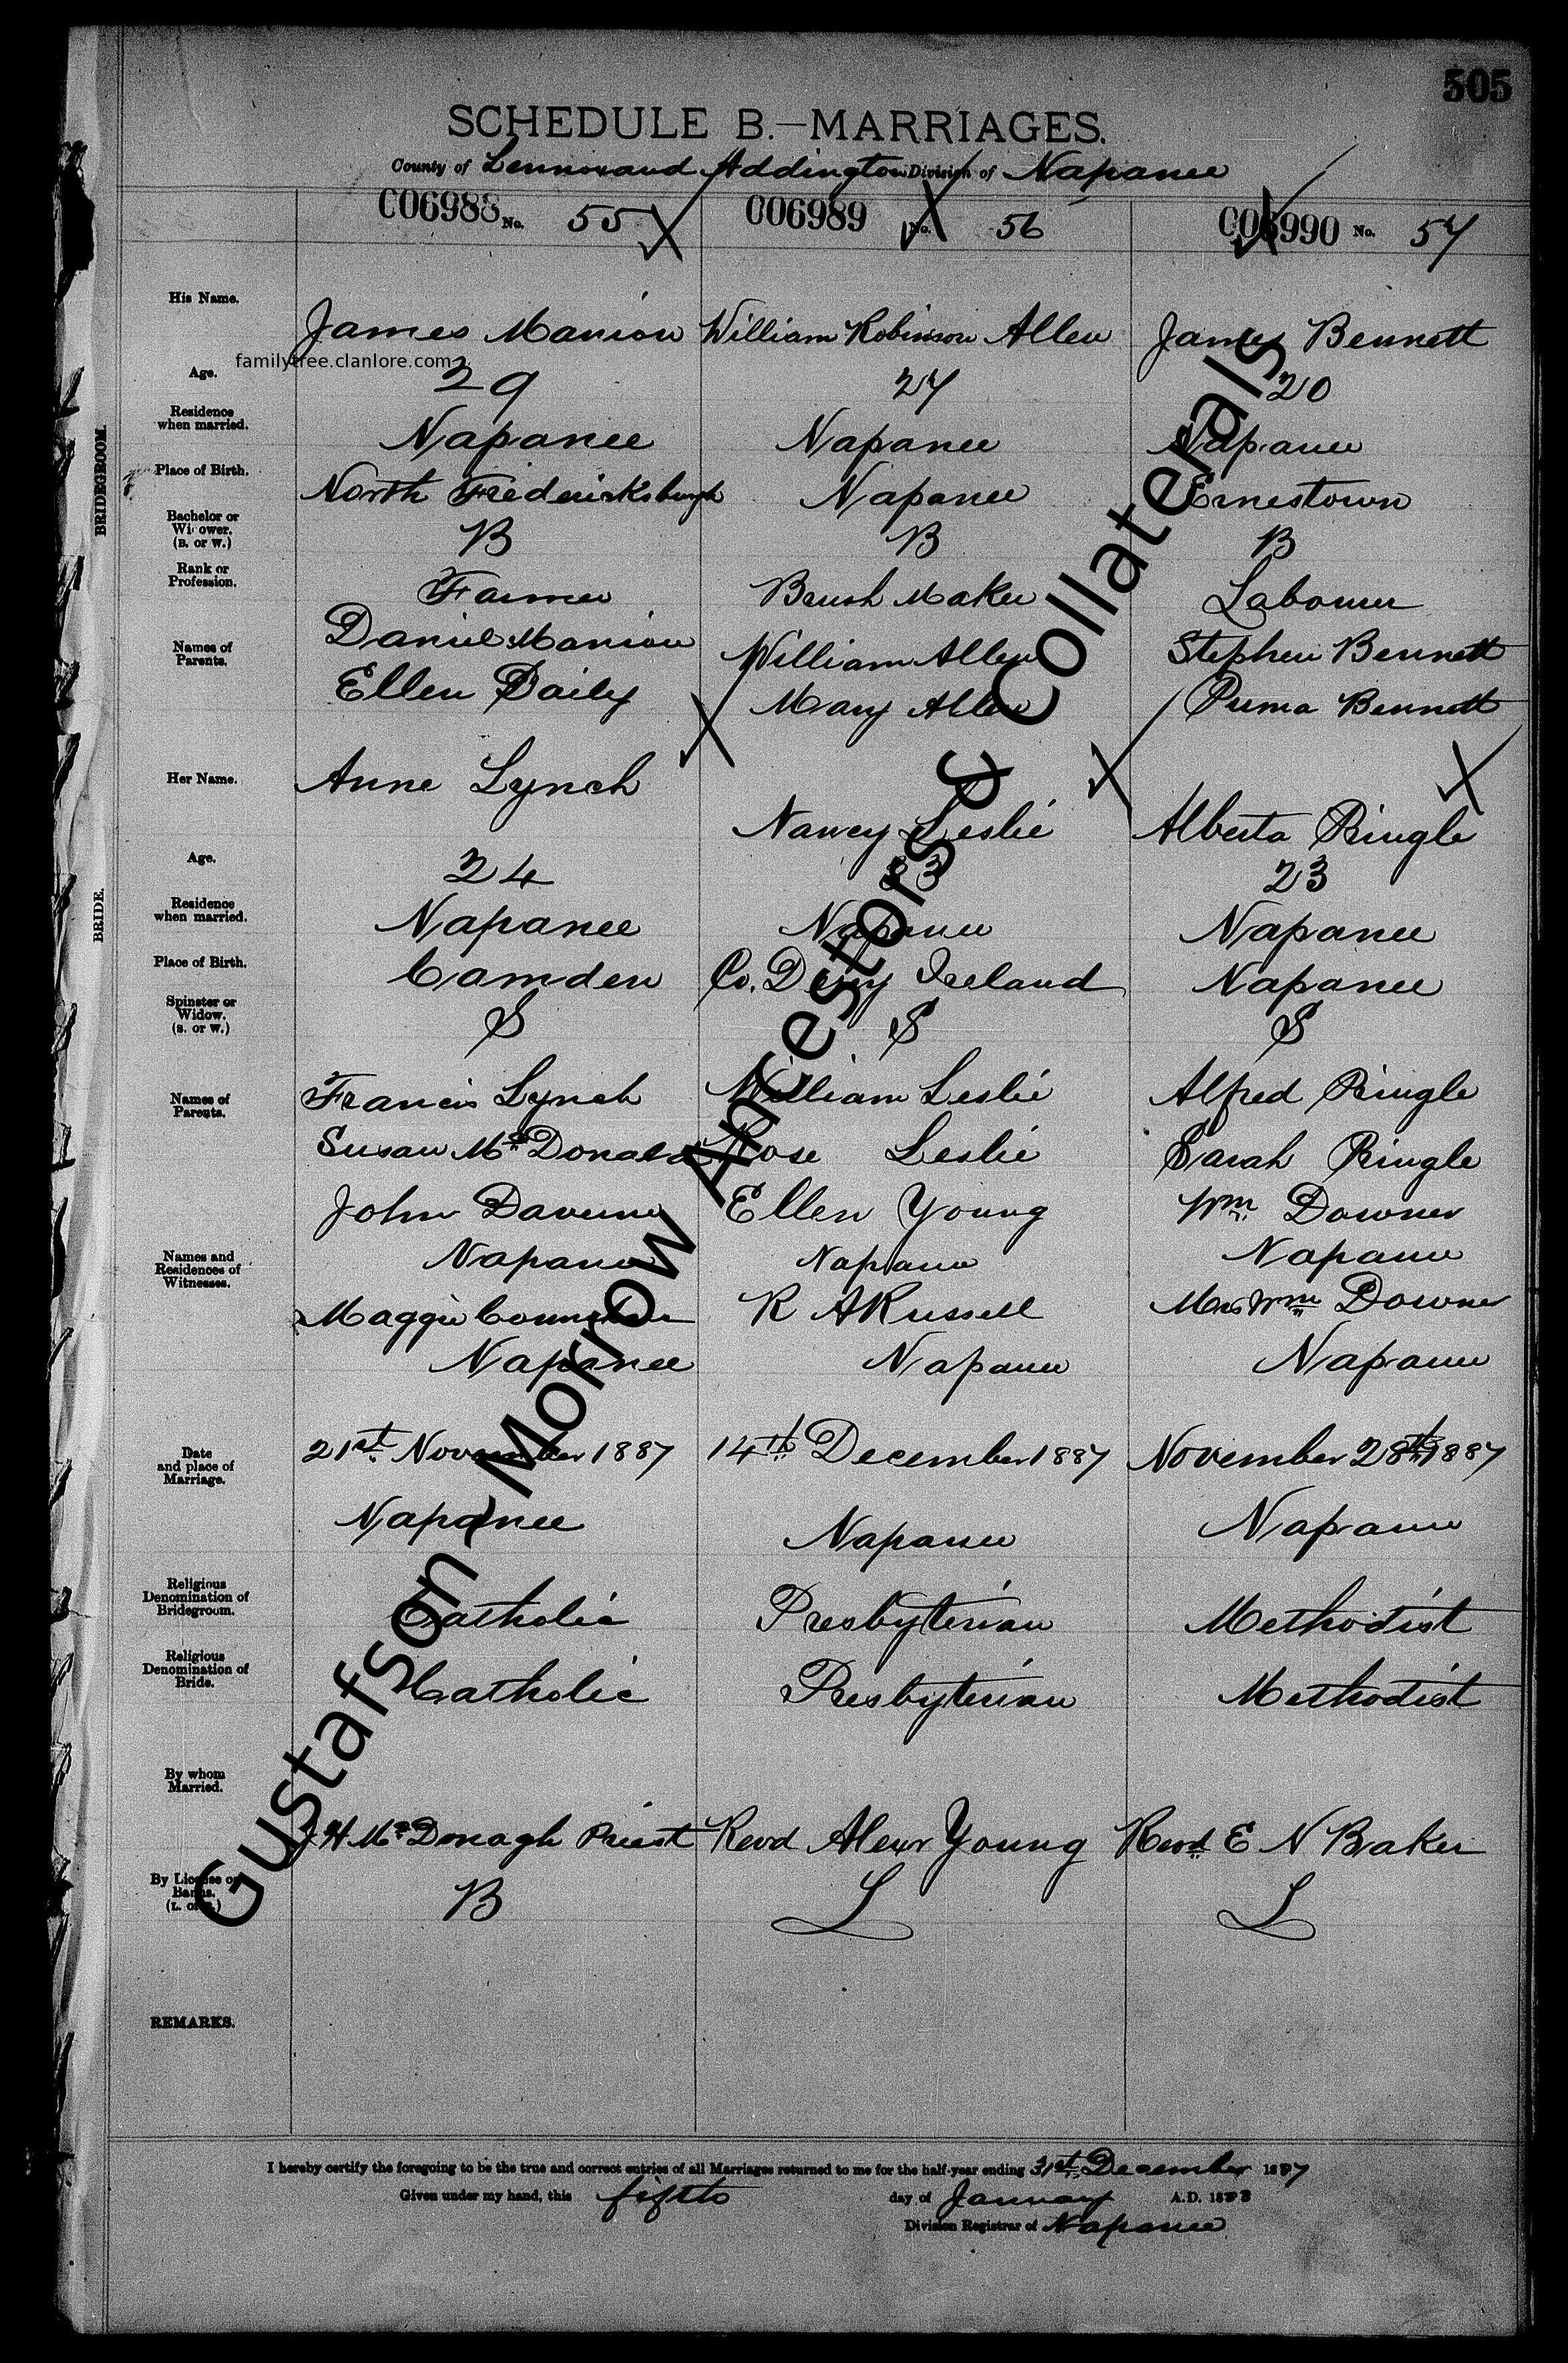 505
SCHEDULE B.—MARRIAGES.
County of Lennox and Addington Division of Napanee
C06988 No. 55 006989 No. 56 C06990 No. 57
His Name. James Manion William Robinson Allen James Bennett
familytree.clanlore.com
Age. 29 27 20
Residence when married. Napanee Napanee Napanee
BRIDEGROOM.
Place of Birth. North Fredericksburgh Napanee Ernestown
Bachelor or Widower. (B. or W.) B B B
Rank or Profession. Farmer Brush Maker Labourer
Names of Parents. Daniel Manion William Allen Stephen Bennett
Ellen Daily Mary Allen Bennett
Her Name. Anne Lynch Nancy Leslie Alberta Pringle
Age. 24 33 23
BRIDE.
Residence when married. Napanee Napanee Napanee
Place of Birth. Camden Co. Derry Ireland Napanee
Spinster or Widow. (S. or W.) S S S
Names of Parents. Francis Lynch William Leslie Alfred Pringle
Susan McDonald Rose Leslie Sarah Pringle
Names and Residences of Witnesses. John Daverne Ellen Young Wm Downer
Napanee Napanee Napanee
Maggie R A Russell Mrs Wm Downer
Napanee Napanee Napanee
Date and place of Marriage. 21st November 1887 14th December 1887 November 28th 1887
Napanee Napanee Napanee
Religious Denomination of Bridegroom. Catholic Presbyterian Methodist
Religious Denomination of Bride. Catholic Presbyterian Methodist
By whom Married. J H McDonagh Priest Revd Alexr Young Revd E N Baker
By License or Banns. (L. or B.) B L L
REMARKS.
I hereby certify the foregoing to be the true and correct entries of all Marriages returned to me for the half-year ending 31st December 1887
Given under my hand, this fifth day of January A.D. 1888
Division Registrar of Napanee
Gustafson-Morrow Ancestors & Collaterals